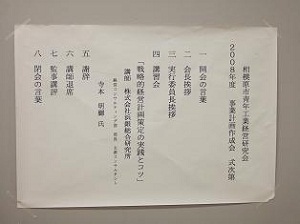 相模原市青年工業経営研究会
2008年度 事業計画作成会 式次第
一 開会の言葉
二 会長挨拶
三 実行委員長挨拶
四 講習会
「戦略的経営計画策定の実践とコツ」
講師 株式会社浜銀総合研究所
寺本 明輝 氏
五 謝辞
六 講師退席
七 監事講評
八 閉会の言葉